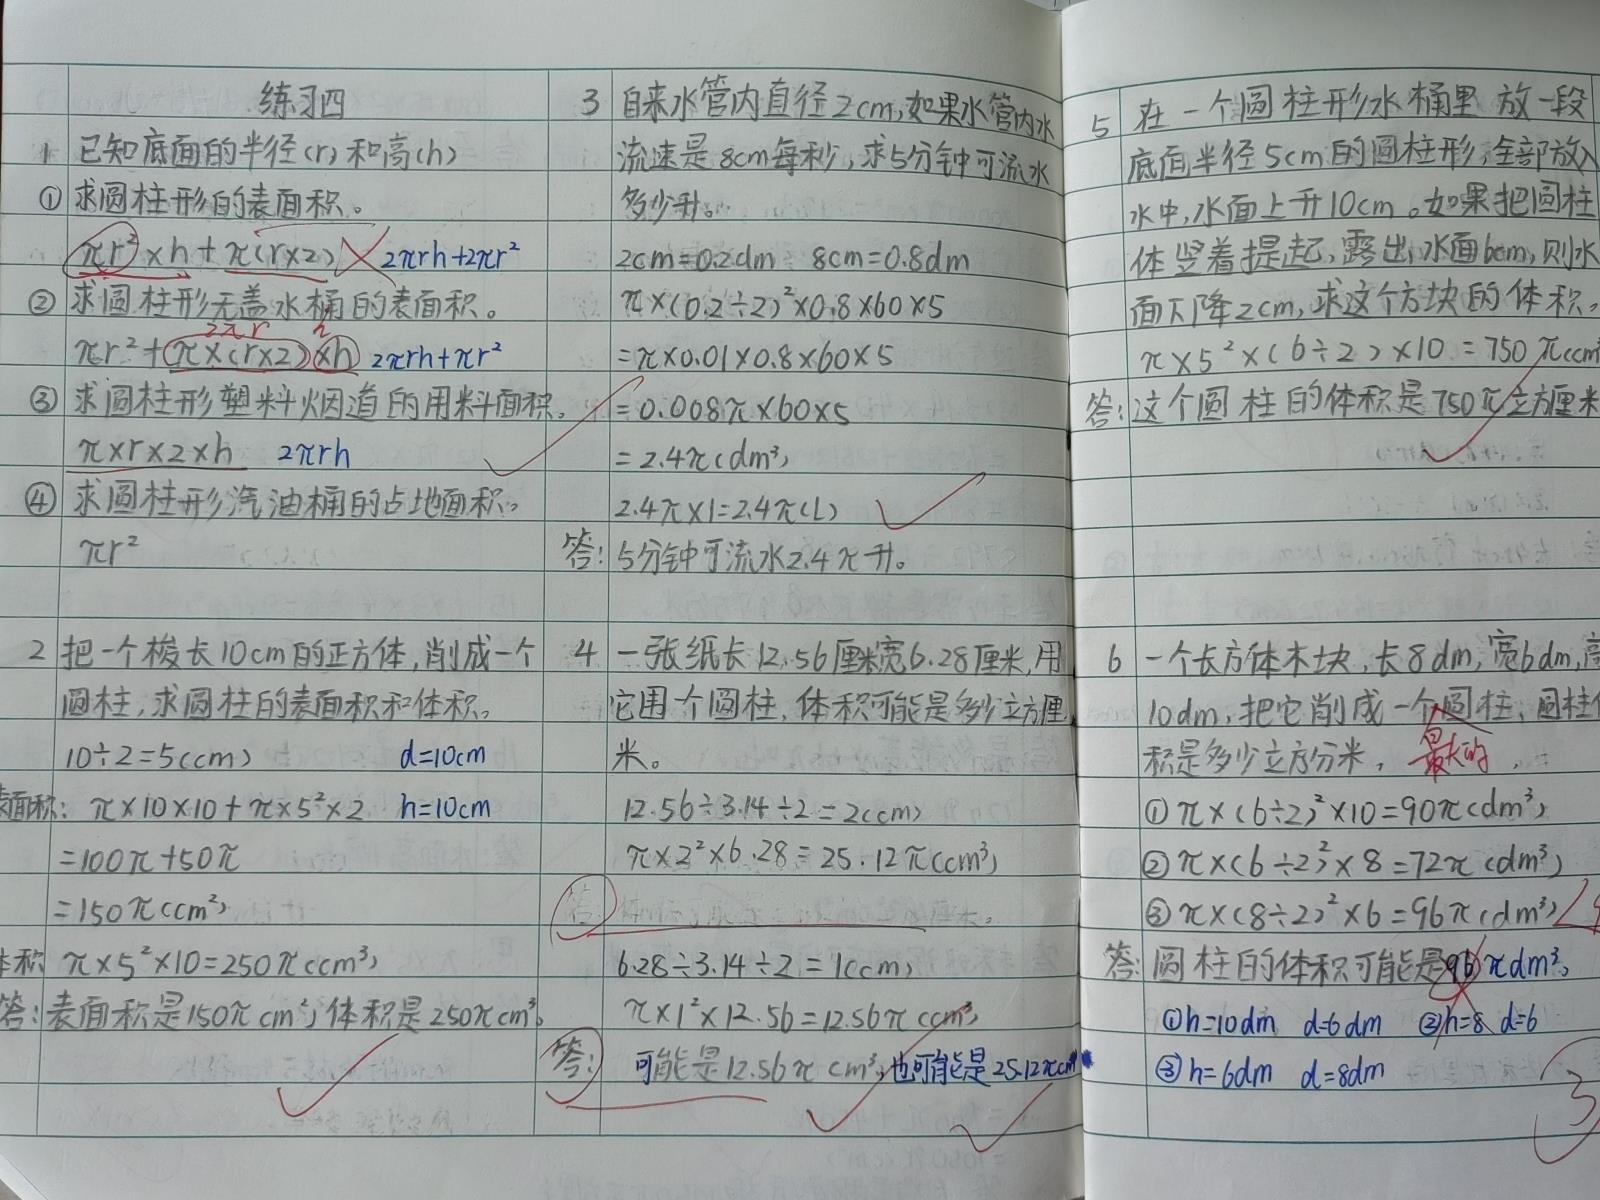 练习四
1 已知底面的半径(r)和高(h)
① 求圆柱形的表面积。
πr²×h+π(r×2) 2πrh+2πr²
② 求圆柱形无盖水桶的表面积。
2πr h
πr²+π×(r×2)×h 2πrh+πr²
③ 求圆柱形塑料烟道的用料面积。
π×r×2×h 2πrh
④ 求圆柱形汽油桶的占地面积。
πr²
2 把一个棱长10cm的正方体,削成一个
圆柱,求圆柱的表面积和体积。
10÷2=5(cm) d=10cm
表面积: π×10×10+π×5²×2 h=10cm
=100π+50π
=150π(cm²)
体积 π×5²×10=250π(cm³)
答:表面积是150πcm²,体积是250πcm³。
3 自来水管内直径2cm,如果水管内水
流速是8cm每秒,求5分钟可流水
多少升。
2cm=0.2dm 8cm=0.8dm
π×(0.2÷2)²×0.8×60×5
=π×0.01×0.8×60×5
=0.008π×60×5
=2.4π(dm³)
2.4π×1=2.4π(L)
答:5分钟可流水2.4π升。
4 一张纸长12.56厘米宽6.28厘米,用
它围个圆柱,体积可能是多少立方厘
米。
12.56÷3.14÷2=2(cm)
π×2²×6.28=25.12π(cm³)
答:
6.28÷3.14÷2=1(cm)
π×1²×12.56=12.56π(cm³)
答: 可能是12.56πcm³,也可能是25.12πcm³
5 在一个圆柱形水桶里放一段
底面半径5cm的圆柱形,全部放入
水中,水面上升10cm。如果把圆柱
体竖着提起,露出水面6cm,则水
面下降2cm,求这个方块的体积。
π×5²×(6÷2)×10=750π(cm³
答:这个圆柱的体积是750π立方厘米
6 一个长方体木块,长8dm,宽6dm,高
10dm,把它削成一个圆柱,圆柱体
积是多少立方分米, 最大的
①π×(6÷2)²×10=90π(dm³)
②π×(6÷2)²×8=72π(dm³)
③π×(8÷2)²×6=96π(dm³)
答:圆柱的体积可能是96πdm³。
①h=10dm d=6dm ②h=8 d=6
③h=6dm d=8dm
3